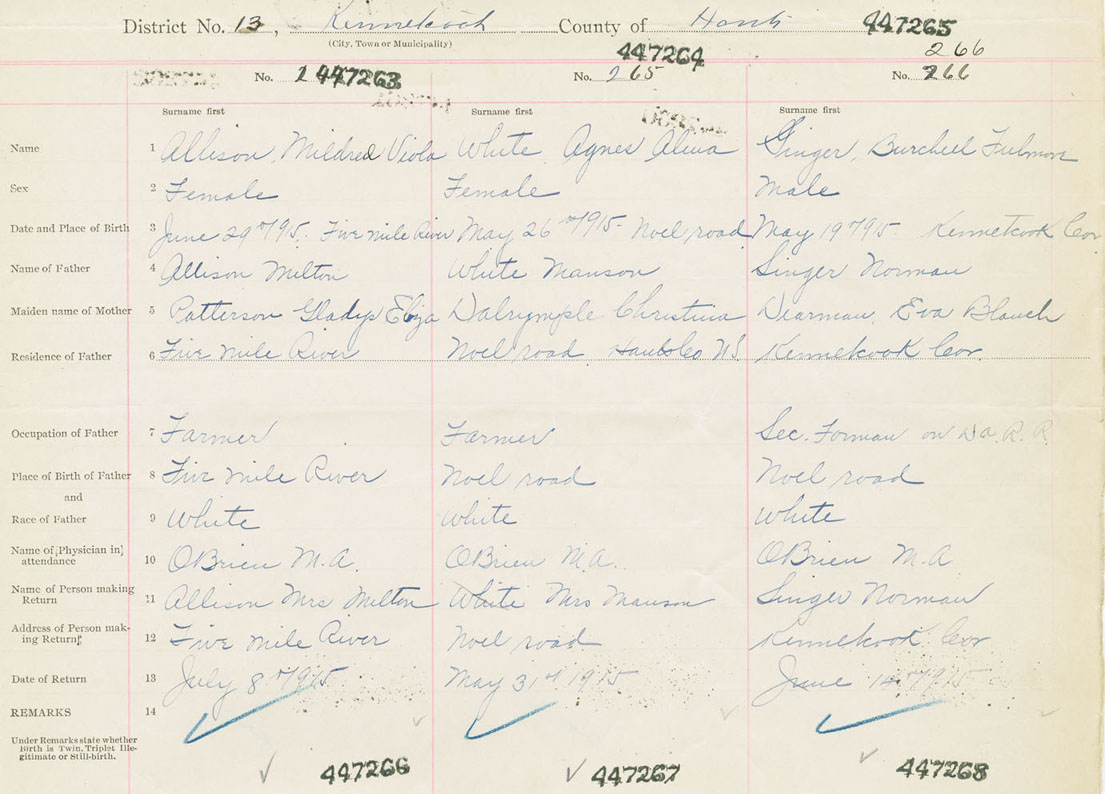 District No. 13, Kennetcook County of Hants 447265
(City, Town or Municipality) 447264 266
No. 2 447263 No. 265 No. 266
Surname first Surname first Surname first
Name 1 Allison, Mildred Viola White, Agnes Ginger, Burchell
Sex 2 Female Female Male
Date and Place of Birth 3 June 29th 1915. Five mile River May 26th 1915- Noel road May 19th 1915- Kennetcook Cor.
Name of Father 4 Allison Milton White Manson Singer Norman
Maiden name of Mother 5 Patterson Gladys Eliza Dalrymple Christina Dearman, Eva Blanch
Residence of Father 6 Five mile River Noel road Hants Co N.S. Kennetcook Cor.
Occupation of Father 7 Farmer Farmer Sec. Forman on D.a.R.R.
Place of Birth of Father 8 Five mile River Noel road Noel road
and
Race of Father 9 White White White
Name of Physician in attendance 10 OBrien M.A. OBrien M.A. OBrien M.A
Name of Person making Return 11 Allison Mrs Milton White Mrs Manson Singer Norman
Address of Person mak-
ing Return 12 Five mile River Noel road Kennetcook Cor
Date of Return 13 July 8th 1915 May 31st 1915 June 14th 1915
REMARKS 14
Under Remarks state whether
Birth is Twin, Triplet Ille-
gitimate or Still-birth.
447266 447267 447268